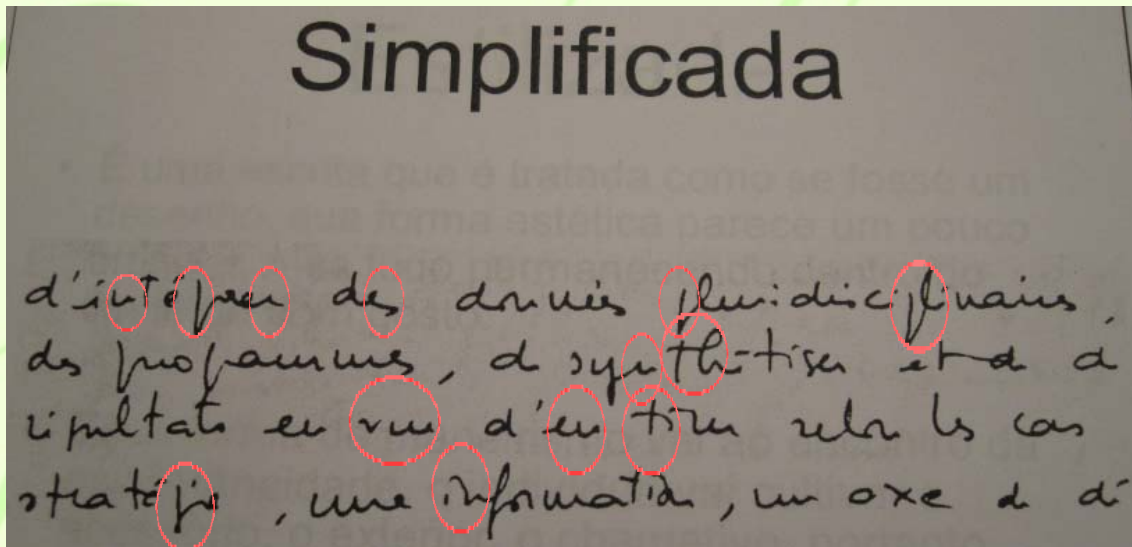 Simplificada
d'intéper des données pluridisciplinaires,
des programmes, d synthétiser et d d
résultats en vue d'en tirer selon les cas
stratégie, une information, un axe d di